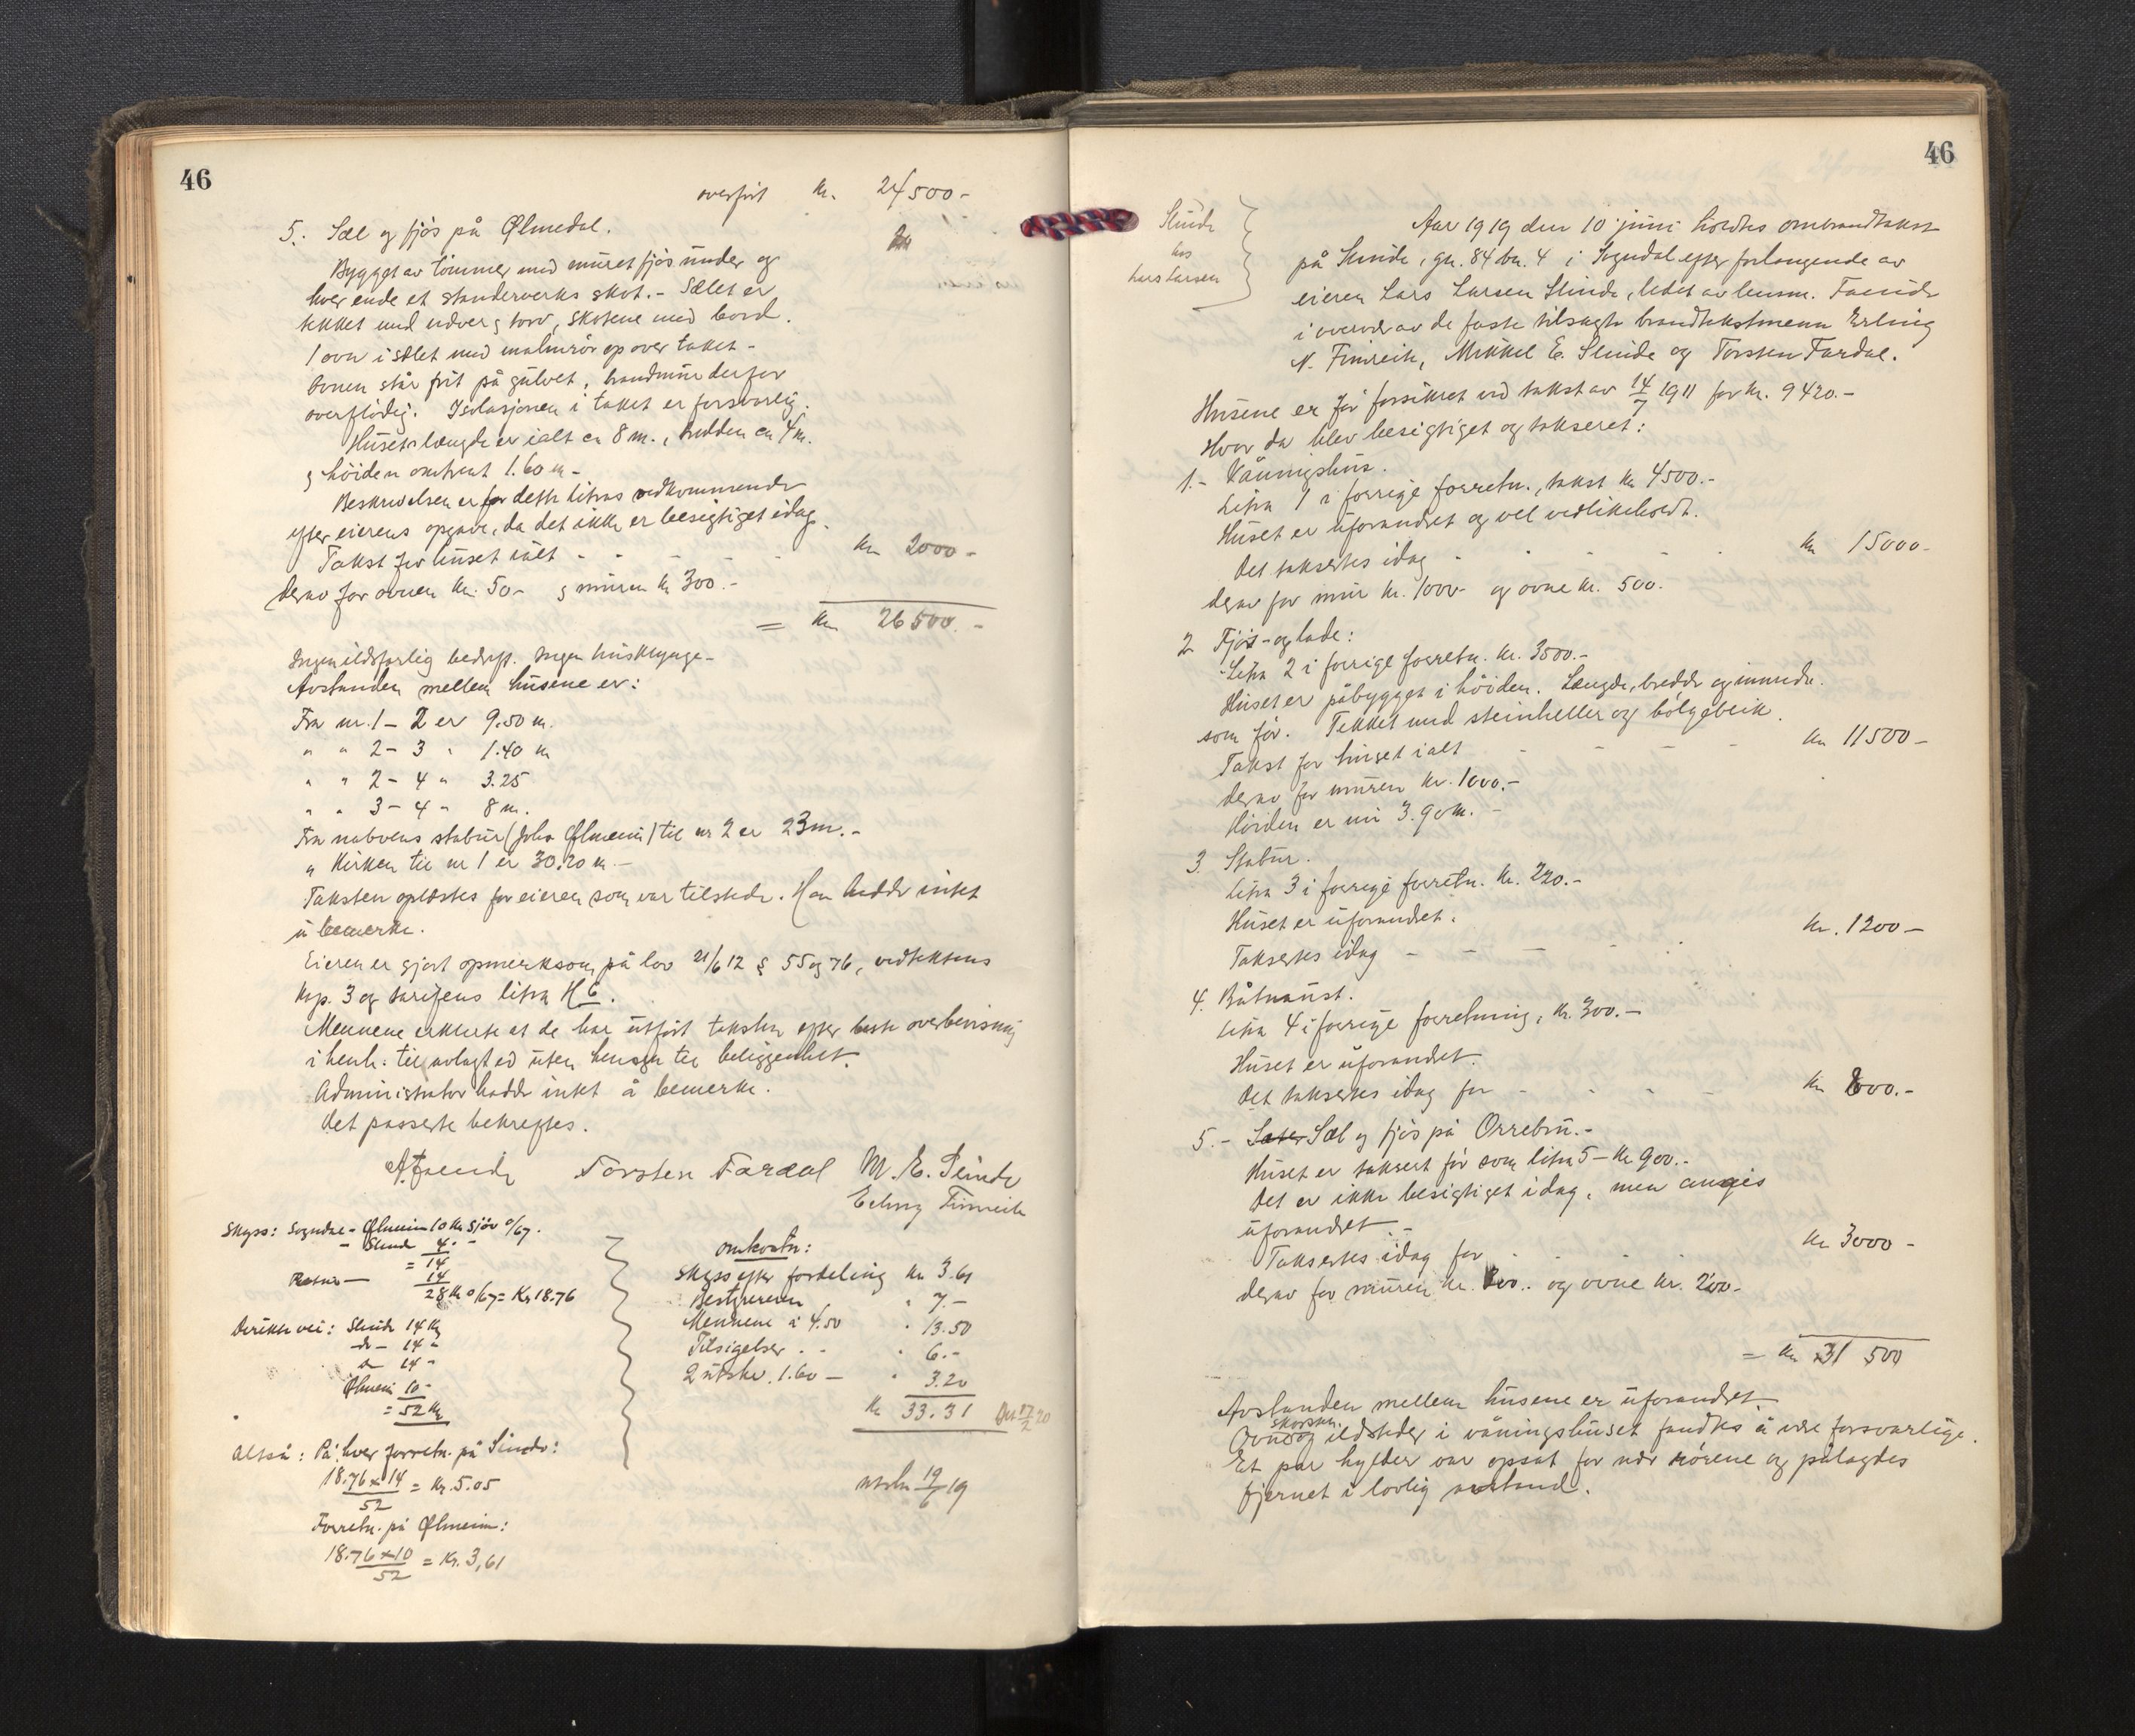 46
overført kr. 24500.-
5. Sæl og fjøs på Ølmedal.
Bygget av tømmer med muret fjøs under og
hver ende et standerverks skot.- Sælet er
tekket med næver og torv, skotene med bord.
1 ovn i sælet med malmrør op over taket -
Ovnen står frit på gulvet, brandmur derfor
overflødig. Isolasjonen i taket er forsvarlig.
Husets længde er ialt ca 8 m., bredden ca 4 m.
og høiden omtrent 1.60 m -
Beskrivelsen er for dette litras vedkommende
efter eierens opgave, da det ikke er besigtiget idag.
Takst for huset ialt - - - - kr 2000 -
derav for ovnen kr. 50.- og muren kr 300.-
= kr 26500.-
Ingen ildsfarlig bedrift. Ingen husklynge.-
Avstanden mellem husene er:
Fra nr. 1 - 2 er 9.50 m.
" " 2 - 3 " 1.40 m
" " 2 - 4 " 3.25
" " 3 - 4 " 8 m.
Fra naboens stabur (Joha Ølmheim) til nr 2 er 23 m.-
" Kirken til nr 1 er 30.20 m.-
Taksten oplæstes for eieren som var tilstede. Han hadde intet
å bemerke.
Eieren er gjort opmerksom på lov 21/6 12 § 55 og 76, vedtektens
kap. 3 og tarifens litra H 6.
Mennene erklærte at de har utført taksten efter beste overbevisning
i henh. til avlagt ed uten hensyn til beliggenhet.
Administrator hadde intet å bemerke.
Det passerte bekreftes.
A. Foended Torsten Fardal M. E. Slinde
Erling Fimreite
Skyss: Sogndal - Ølmheim 10 km sjøv a/67.
- Slinde 4. -
= 14
Retur - 14
28 km a/67 = Kr 18.76
Direkte vei: Slinde 14 km
do - 14 -
do 14 -
Ølmheim 10 -
= 52 km
Altså: På hver forretn. på Slinde:
18.76 x 14 / 52 = kr. 5.05
Forretn. på Ølmheim:
18.76 x 10 / 52 = Kr. 3,61
Omkostn:
Skyss efter fordeling kr 3.61
Bestyreren " 7.-
Mennene à 4.50 " 13.50
Tilsigelser - - " 6.-
2 utskr. 1.60 - " 3.20
Kr 33.31
utskr 19/6 19
46
Slinde
hos
Lars Larsen
Aar 1919 den 10 juni holdtes ombrandtakst
på Slinde, gn. 84 bn. 4 i Sogndal efter forlangende av
eieren Lars Larsen Slinde, ledet av lensm. Foended
i overvær av de faste tilsagte brandtakstmenn Erling
N. Fimreite, Mikkel E. Slinde og Torsten Fardal.
Husene er før forsikret ved takst av 14/7 1911 for kr. 9420.-
Hvor da blev besigtiget og taksert:
1.- Våningshus.
Litra 1 i forrige forretn., takst kr 4500.-
Huset er uforandret og vel vedlikeholdt.
Det taksertes idag - - - - kr 15000.-
derav for mur kr. 1000.- og ovne kr. 500.
2 Fjøs- og lade:
Litra 2 i forrige forretn. kr. 3500.-
Huset er påbygget i høiden. Længde, bredde og innrede.
som før. Tekket med steinheller og bølgeblik.
Takst for huset ialt - - - - kr 11500 -
derav for muren kr. 1000.-
Høiden er nu 3.90 m. -
3. Stabur.
Litra 3 i forrige forretn. kr. 220.-
Huset er uforandret.
Taksertes idag - - - - kr. 1200 -
4. Båtnaust.
Litra 4 i forrige forretning, kr. 300.-
Huset er uforandret.
Det taksertes idag for - - - - kr 800.-
5.- Sæter Sæl og fjøs på Orrebru.-
Huset er taksert før som litra 5 - kr 900.-
Det er ikke besigtiget idag, men angis
uforandret.-
Taksertes idag for - - - - kr 3000 -
derav for muren kr. 300.- og ovne kr. 200.-
= kr 31 500
Avstanden mellem husene er uforandret.
Ovns og skorstn. ildsteder i våningshuset fandtes å være forsvarlige.
Et par hylder var opsat for nær rørene og pålagdes
fjernet i lovlig avstand.